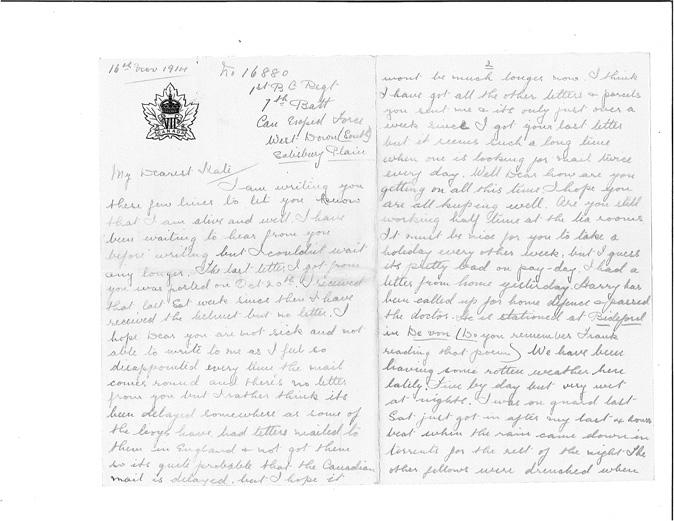 16th Nov 1914
No 16880
1st B C Regt
7th Batt
Can Exped Force
West Down (South)
Salisbury Plain
VII
CANADA
My Dearest Kate
I am writing you
these few lines to let you know
that I am alive and well. I have
been waiting to hear from you
before writing but I couldn't wait
any longer. The last letter I got from
you was posted on Oct 20th. I received
that last Sat week since then I have
received the helmet but no letter. I
hope Dear you are not sick and not
able to write to me as I feel so
disappointed every time the mail
comes round and there's no letter
from you but I rather think its
been delayed somewhere as some of
the boys have had letters mailed to
them in England & not got them
so its quite probable that the Canadian
mail is delayed. but I hope it
2
wont be much longer now. I think
I have got all the other letters & parcels
you sent me & its only just over a
week since I got your last letter
but it seems such a long time
when one is looking for mail twice
every day. Well Dear how are you
getting on all this time I hope you
are all keeping well. Are you still
working half time at the tea rooms
It must be nice for you to take a
holiday every other week, but I guess
its pretty bad on pay-day. I had a
letter from home yesterday. Harry has
been called up for home defence & passed
the doctor. He is stationed at Bideford
in Devon (Do you remember Frank
reading that poem) We have been
having some rotten weather here
lately. Fine by day but very wet
at nights. I was on guard last
Sat just got in after my last 4 hours
beat when the rain came down in
torrents for the rest of the night The
other fellows were drenched when